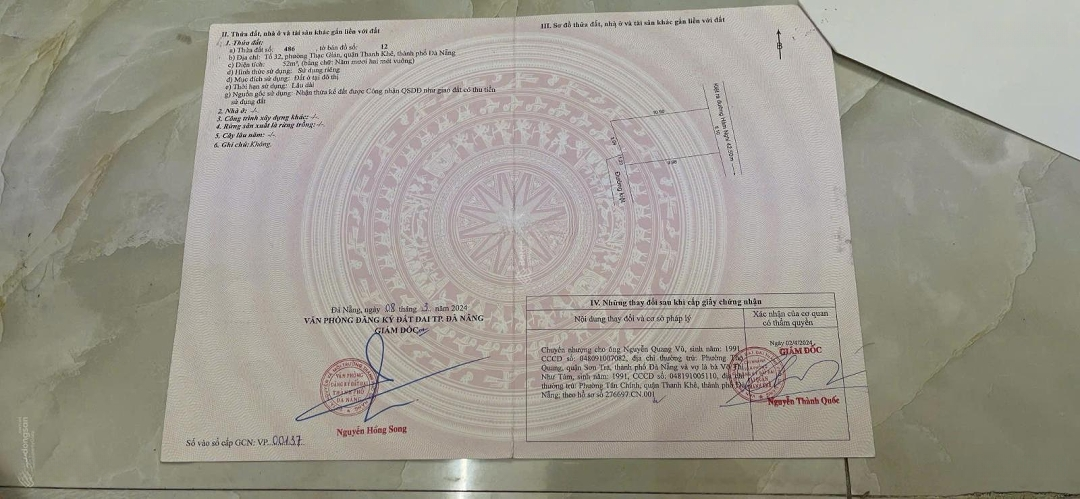 II. Thửa đất, nhà ở và tài sản khác gắn liền với đất
1. Thửa đất:
a) Thửa đất số: 486 , tờ bản đồ số: 12
b) Địa chỉ: Tổ 32, phường Thạc Gián, quận Thanh Khê, thành phố Đà Nẵng
c) Diện tích: 52m², (bằng chữ: Năm mươi hai mét vuông)
d) Hình thức sử dụng: Sử dụng riêng
đ) Mục đích sử dụng: Đất ở tại đô thị
e) Thời hạn sử dụng: Lâu dài
g) Nguồn gốc sử dụng: Nhận thừa kế đất được Công nhận QSDĐ như giao đất có thu tiền
sử dụng đất
2. Nhà ở: -/-
3. Công trình xây dựng khác: -/-
4. Rừng sản xuất là rừng trồng: -/-
5. Cây lâu năm: -/-
6. Ghi chú: Không.
Đà Nẵng, ngày 08 tháng 3 năm 2024
VĂN PHÒNG ĐĂNG KÝ ĐẤT ĐAI TP. ĐÀ NẴNG
GIÁM ĐỐC
VĂN PHÒNG
ĐĂNG KÝ ĐẤT ĐAI
THÀNH PHỐ
ĐÀ NẴNG
Nguyễn Hồng Song
Số vào sổ cấp GCN: VP 00137
III. Sơ đồ thửa đất, nhà ở và tài sản khác gắn liền với đất
B
Đường kiệt
IV. Những thay đổi sau khi cấp giấy chứng nhận
Nội dung thay đổi và cơ sở pháp lý
Xác nhận của cơ quan
có thẩm quyền
Chuyển nhượng cho ông Nguyễn Quang Vũ, sinh năm: 1991,
CCCD số: 048091007082, địa chỉ thường trú: Phường Thọ
Quang, quận Sơn Trà, thành phố Đà Nẵng và vợ là bà Võ Thị
Như Tâm, sinh năm: 1991, CCCD số: 048191005110, địa chỉ
thường trú: Phường Tân Chính, quận Thanh Khê, thành phố Đà
Nẵng; theo hồ sơ số 276697.CN.001
Ngày 02/4/2024
GIÁM ĐỐC
Nguyễn Thành Quốc